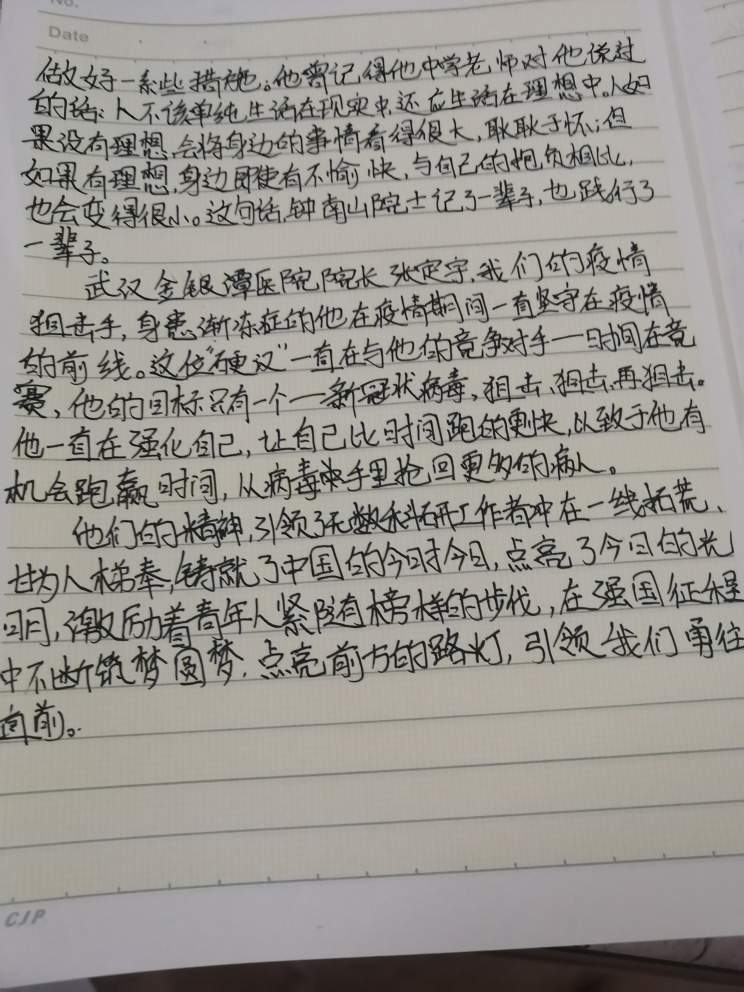 No.
Date
做好一系些措施。他曾记得他中学老师对他说过
的话：人不该单纯生活在现实中，还应生活在理想中。人如
果没有理想，会将身边的事情看得很大，耿耿于怀；但
如果有理想，身边即使有不愉快，与自己的抱负相比，
也会变得很小。这句话，钟南山院士记了一辈子，也践行了
一辈子。
武汉金银潭医院院长张定宇，我们的疫情
狙击手，身患渐冻症的他在疫情期间一直坚守在疫情
的前线。这位“硬汉”一直在与他的竞争对手——时间在竞
赛，他的目标只有一个——新冠状病毒，狙击、狙击、再狙击。
他一直在强化自己，让自己比时间跑的更快，以致于他有
机会跑赢时间，从病毒手里抢回更多的病人。
他们的精神，引领了无数科研工作者冲在一线拓荒、
甘为人梯奉，铸就了中国的今时今日，点亮了今日的光
明，激励着青年人紧随有榜样的步伐，在强国征程
中不断筑梦圆梦，点亮前方的路灯，引领我们勇往
直前。
CJP